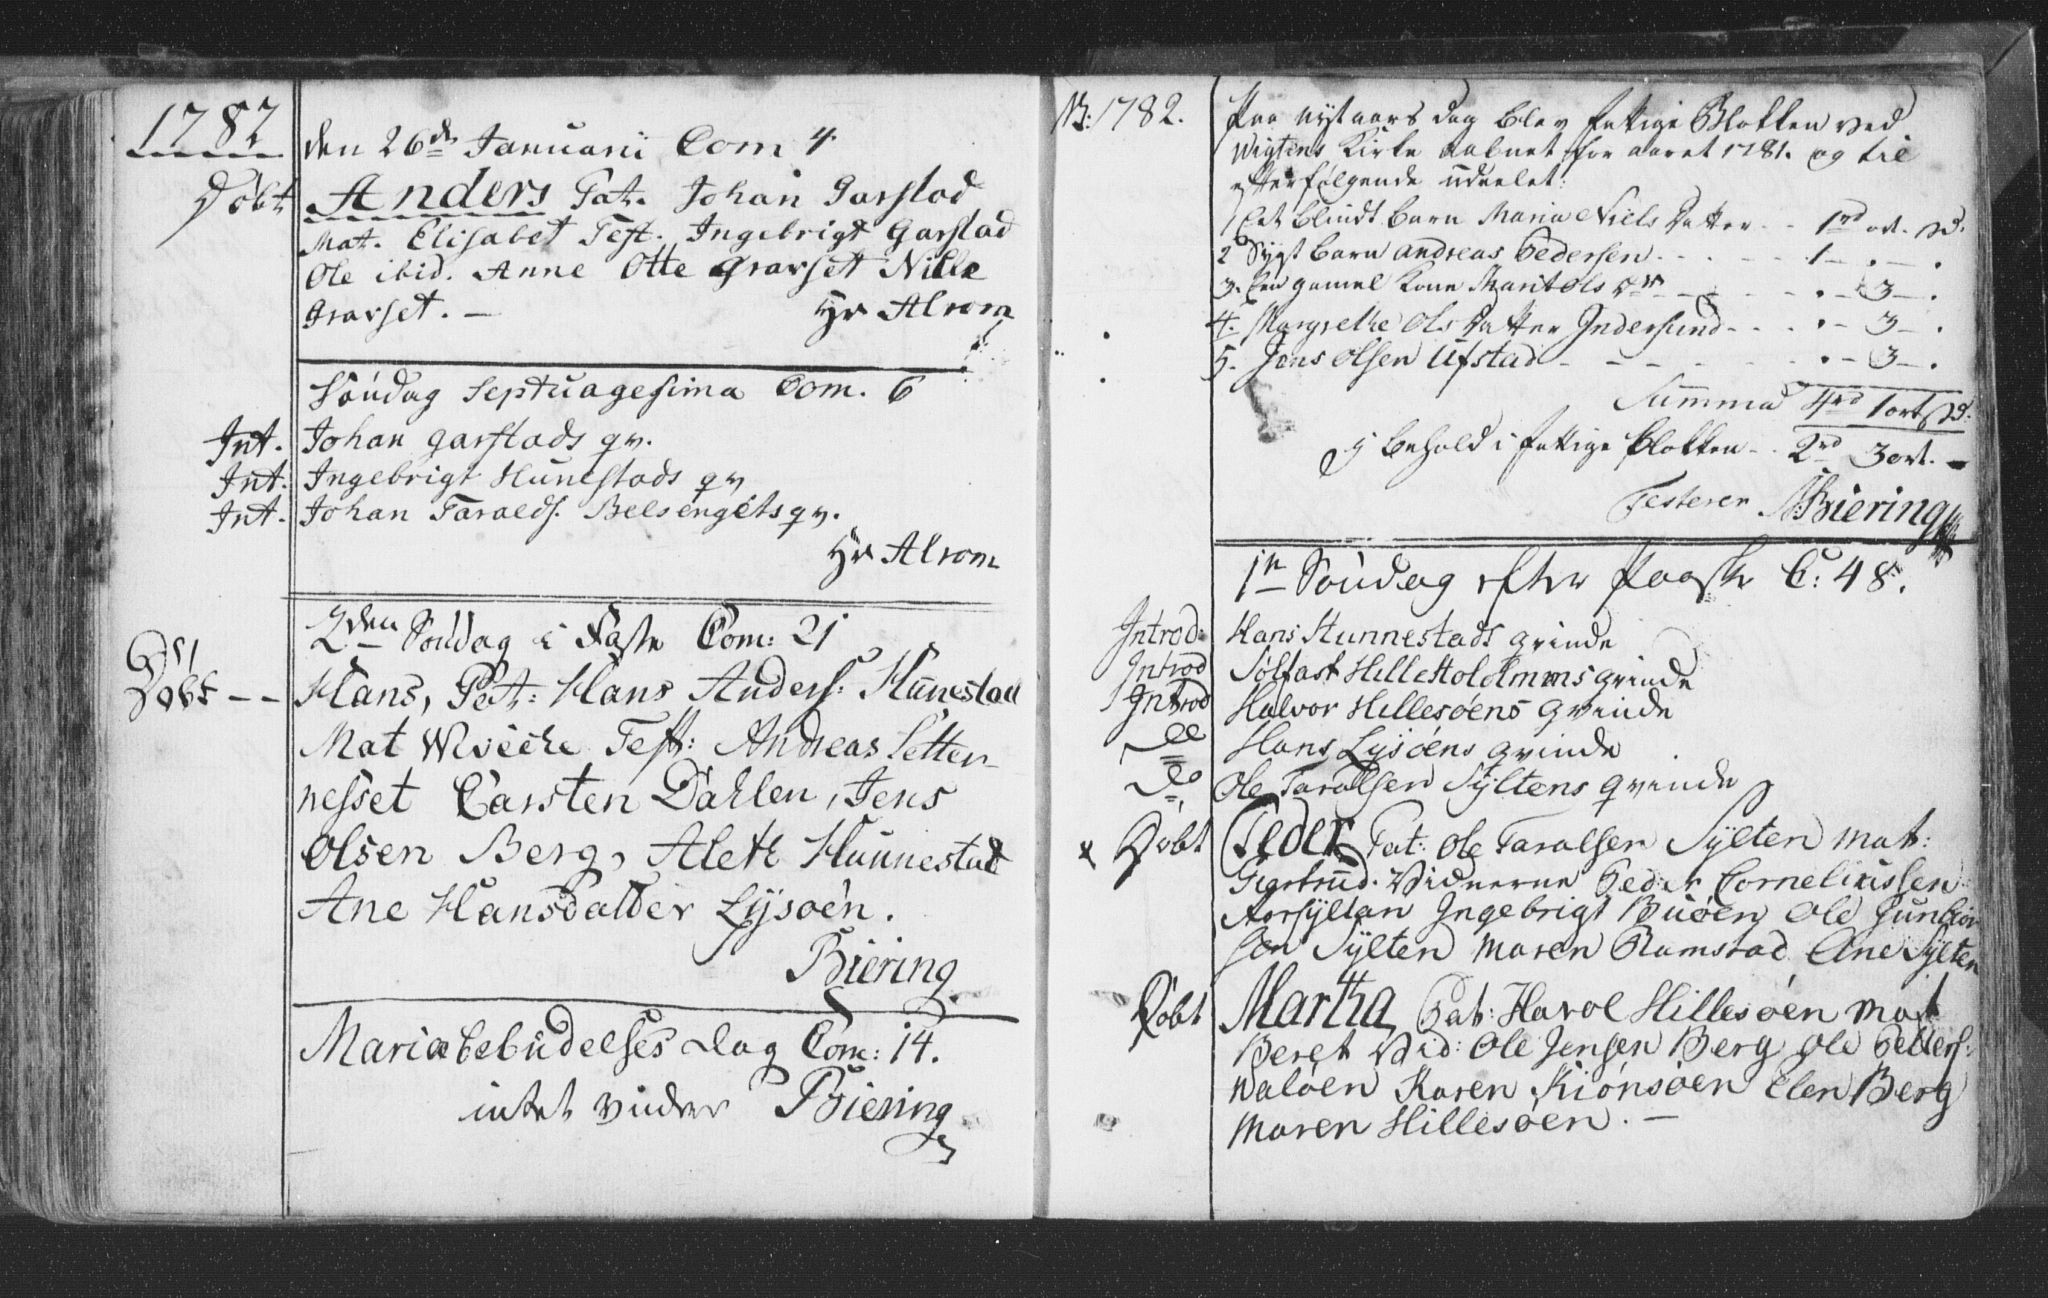 1782
den 26de Januarii Com 4
Døbt Anders Pat. Johan Garstad
Mat. Elisabet Test. Ingebrigt Garstad
Ole ibid. Anne Otte Gravset Nille
Gravset. — Hr Alrom
Søndag Septuagesima Com. 6
Int. Johan Garstads qv.
Int. Ingebrigt Hunestads qv
Int. Johan Taralds. Belsengets qv.
Hr Alrom
2den Søndag i Faste Com: 21
Døbt - - Hans, Pat: Hans Anders: Hunestad
Mat Wiveche Test: Andreas Setter-
nesset Carsten Dahlen, Jens
Olsen Berg, Aleth Hunnestad
Ane Hansdatter Lysøen.
Biering
Mariæ bebudelses dag Com: 14.
intet videre Biering
NB: 1782. Paa nytaars dag blev fattige Blokken ved
Wigtens Kirke aabnet for aaret 1781. og til
efterfølgende uddelet:
1 Et blindt barn Maria Niels Datter - - 1rd ort. sd.
2 Sygt barn Andreas Pedersen - - - 1 — . — .
3. En gamel Kone Marit Ols Dtr - - - . — 3 — .
4. Margrethe Ols Datter Indersund - - - . — 3 — .
5. Jens Olsen Ufstad - - - - . — 3 — .
Summa 4rd 1 ort sd.
I behold i fattige Blokken - - 2rd 3 ort. —
Testerer Biering
1ste Søndag efter Paaske C: 48.
Introd: Hans Hunnestads qvinde
Introd Sølfast Hilleholmms qvinde
Introd Halvor Hillesøens qvinde
Hans Lysøens qvinde
do Ole Taralsen Syltens qvinde
x Døbt Peder Pat: Ole Taralsen Sylten mat:
Giertrud. Vidnerne Peder Corneliussen
Aarsyltan Ingebrigt Buøen Ole Gunbiør
sen Sylten Maren Ramstad Ane Sylten
Døbt Martha Pat: Havol Hillesøen Mat
Beret Vid: Ole Jensen Berg Ole Petters:
Waløen Karen Kiønsøen Elen Berg
Maren Hillesøen. —